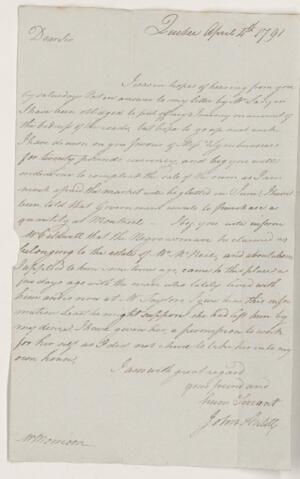 Quebec April 4th 1791
Dear Sir
I was in hopes of hearing from you
by saturdays Post in answer to my letter by Mr
I have been obliged to put off my Journey on account of
the badness of the roads, but hope to go up next week
I have drawn on you favour of
for twenty pounds currency, and beg you will
endeavour to compleat the sale of the rum as I am
much afraid the market will be glutted in I have
been told that Government wants to purchase a
quantity at Montreal. you will inform
Mr Caldwell that the Negro woman he claimed as
belonging to the estate of Mr and about whom
I applied to him some time ago, came to this place a
few days ago with the man who lately lived with
him and is now at Mr Taylors I give him this infor
mation least he might suppose she had left him by
my desire I have given her a permission to work
for her self as I did not chuse to take her into my
own house.
I am with great regard
your friend and
hum Servant
John
Mr Morrison